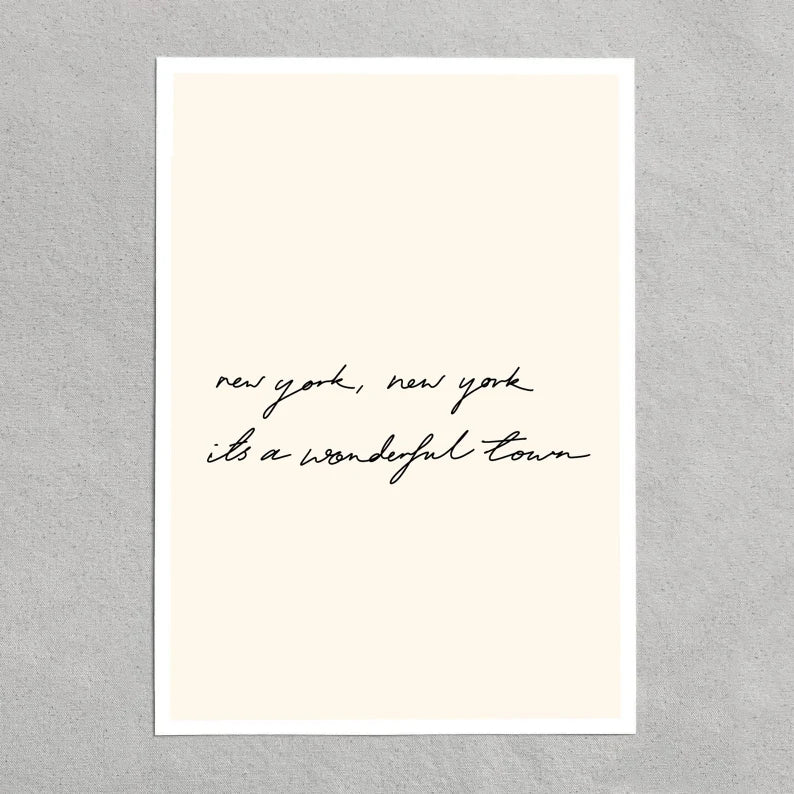 new york, new york
its a wonderful town